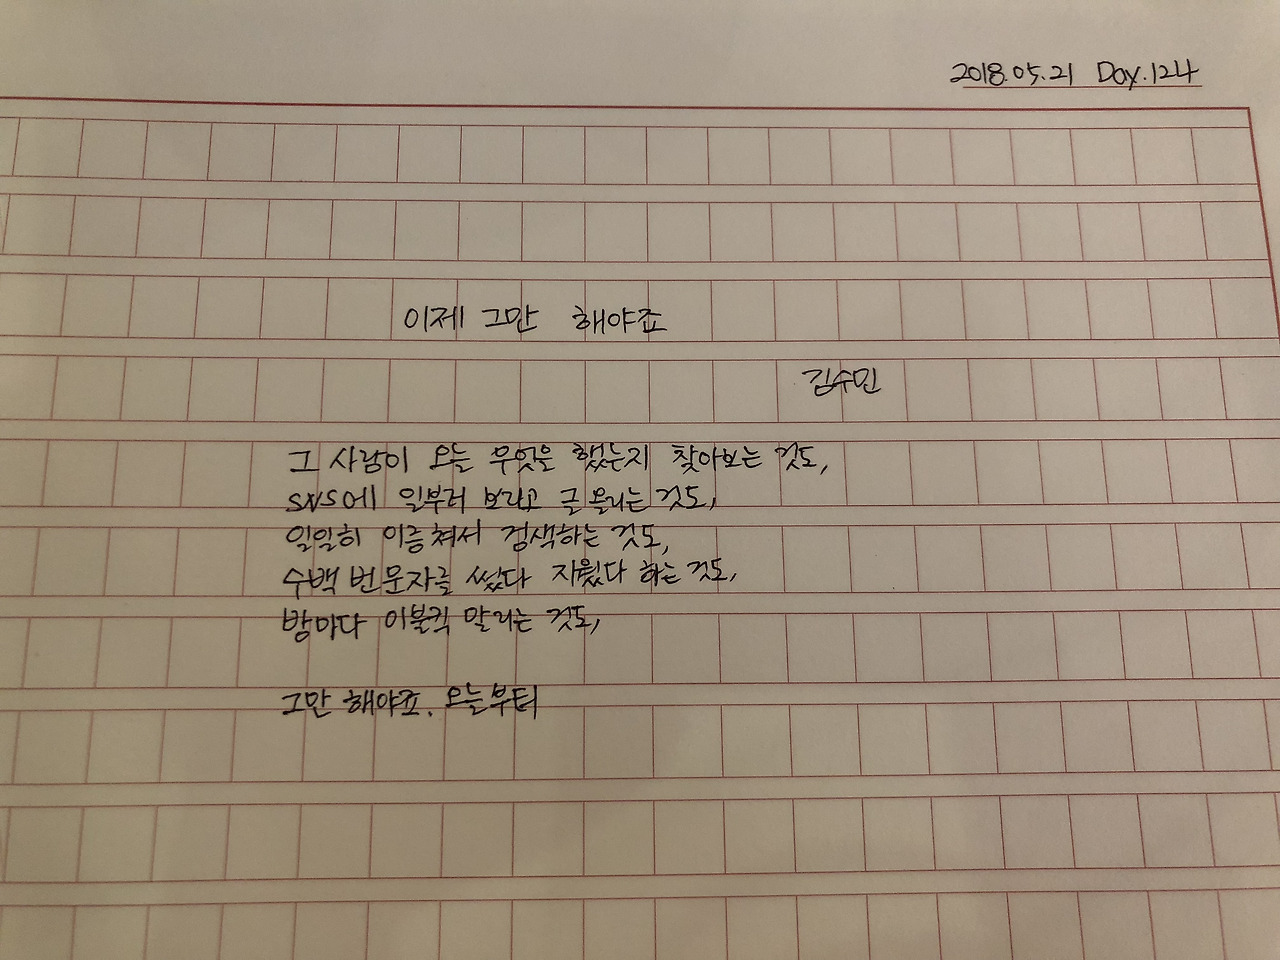 2018.05.21 Day.124
이제 그만 해야죠
김수민
그 사람이 오늘 무엇을 했는지 찾아보는 것도,
SNS에 일부러 보라고 글 올리는 것도,
일일히 이름 쳐서 검색하는 것도,
수백 번 문자를 썼다 지웠다 하는 것도,
밤마다 이불킥 말리는 것도,
그만 해야죠. 오늘부터